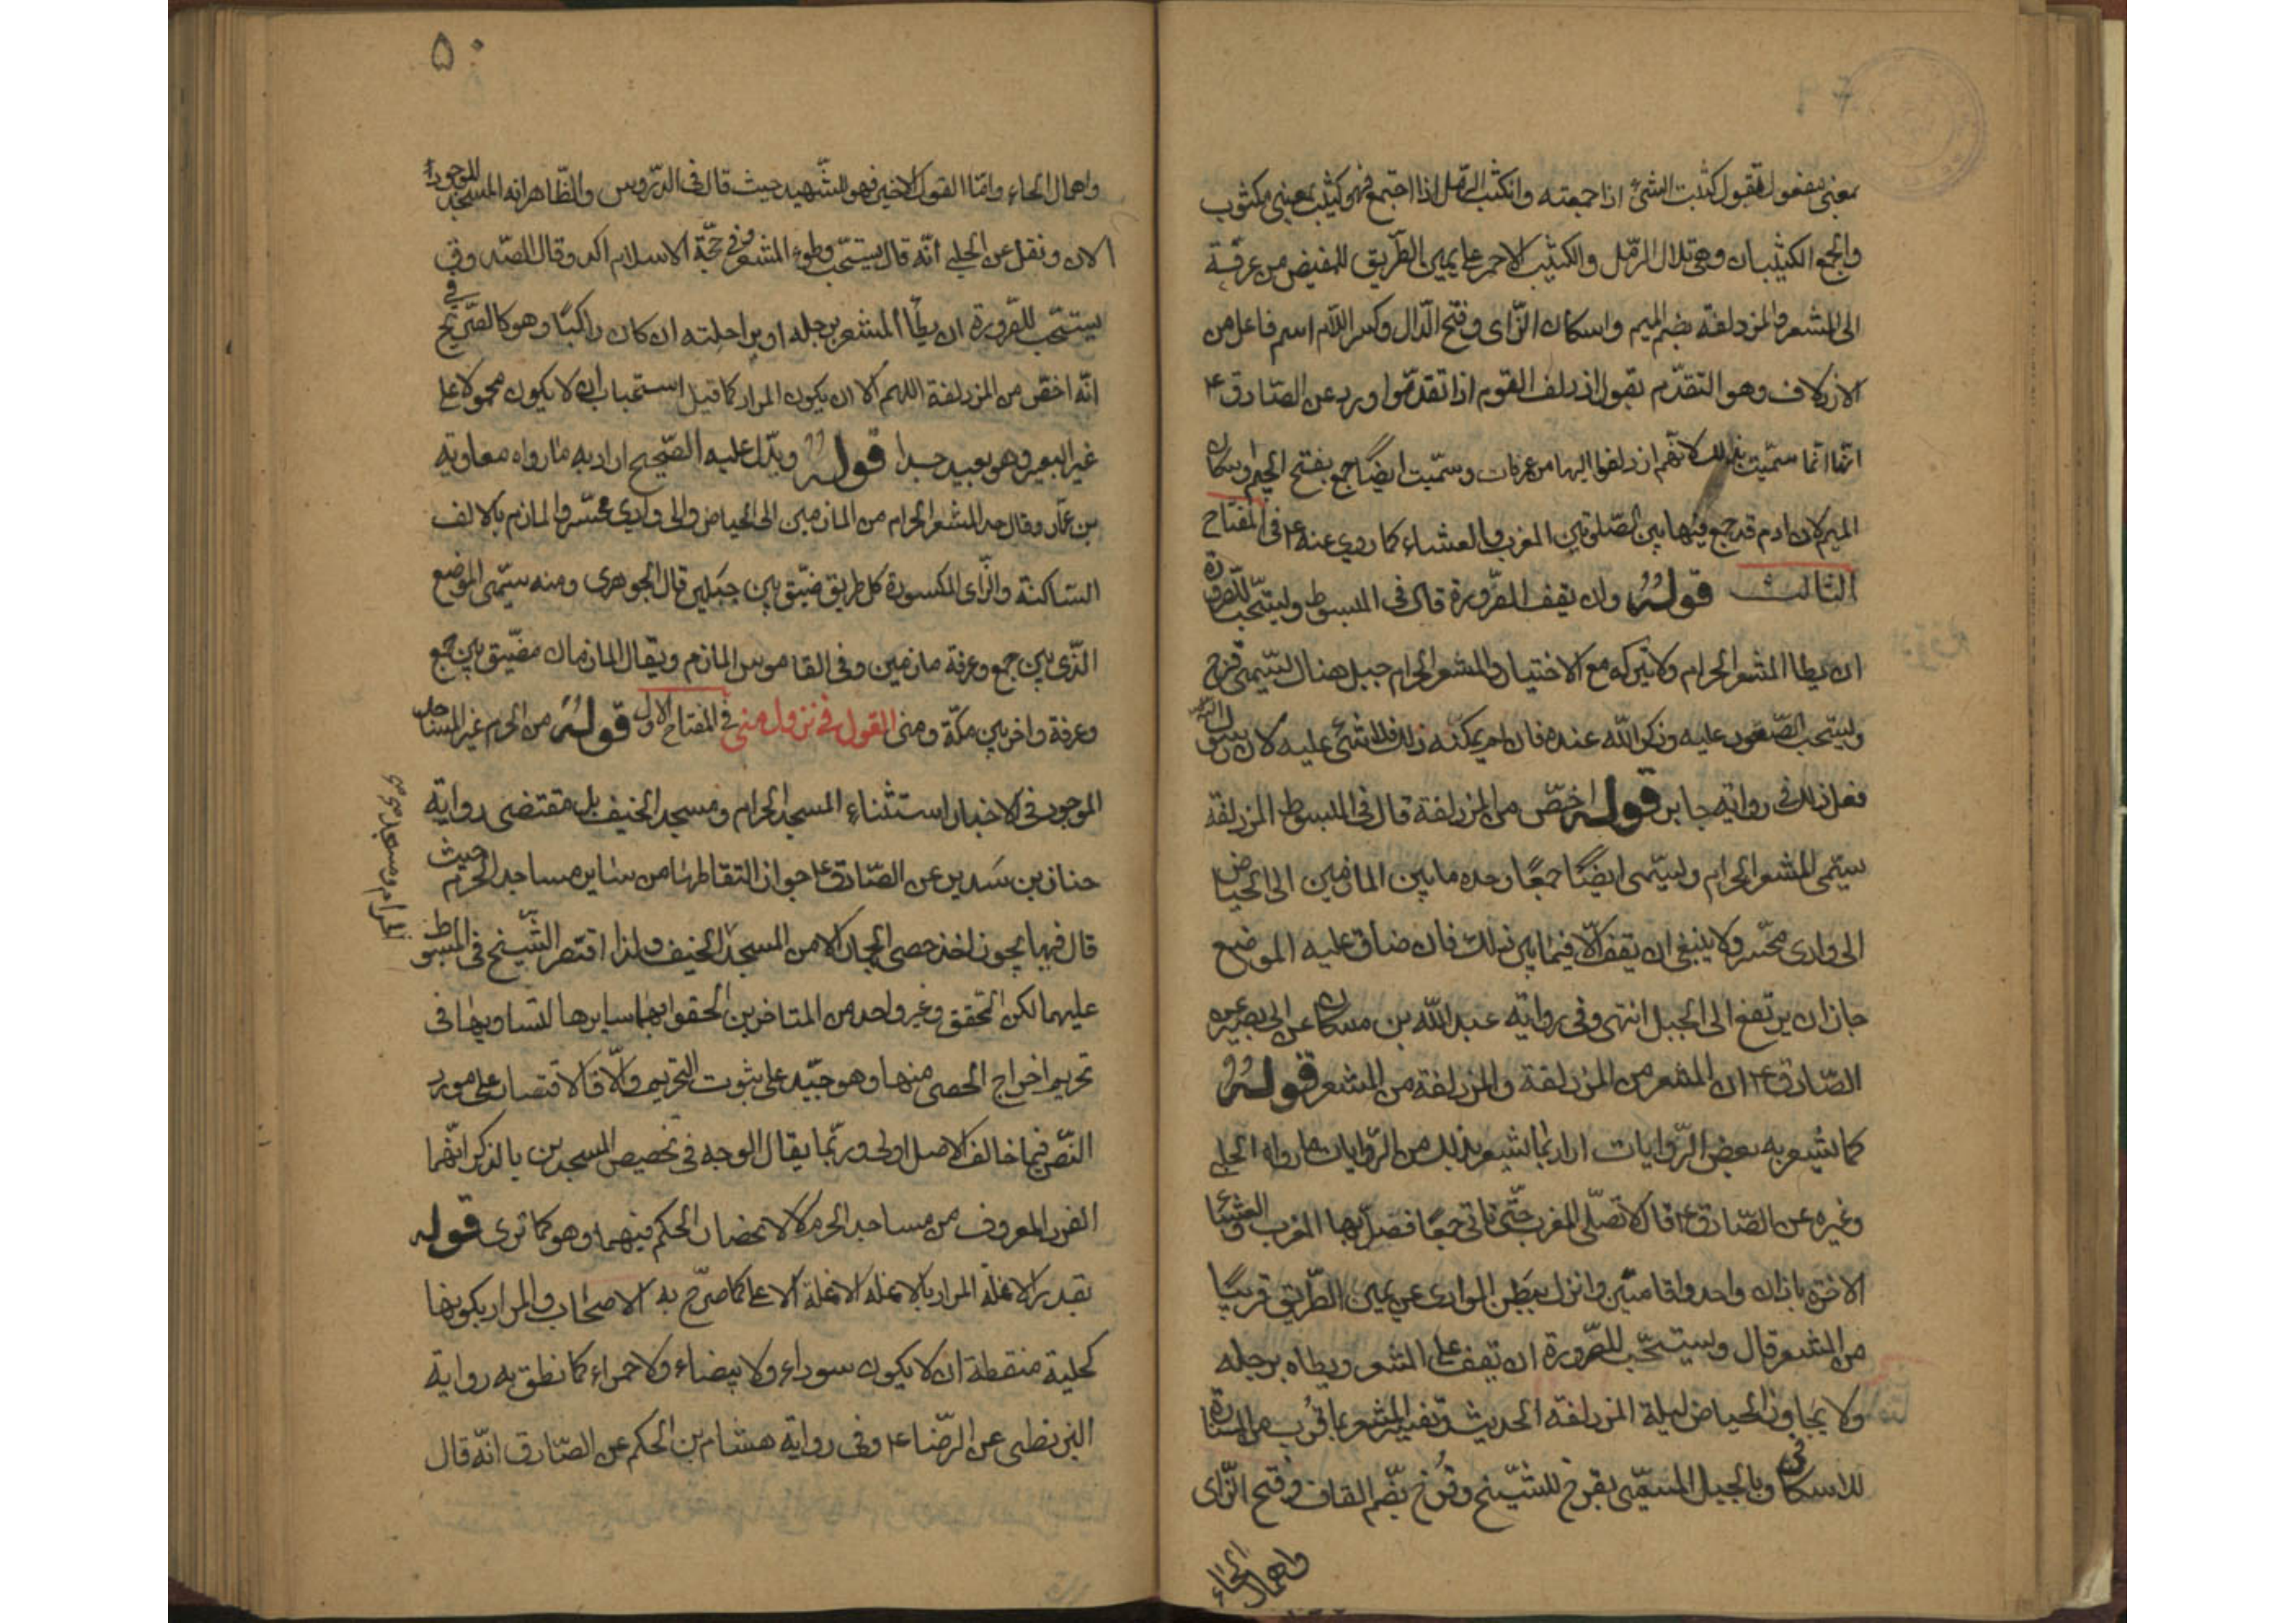 بمعنى مفعول تقول كثبت الشئ اذا جمعته وانكثب الرمل اذا اجتمع فهو كثيب بمعنى مكثوب
والجمع الكثيبان وهى تلال الرّمل والكثيب الاحمر على يمين الطّريق للمفيض من عرفة
الى المشعر والمزدلفة بضم الميم واسكان الزّاى وفتح الدّال وكسر اللّام اسم فاعل من
الازدلاف وهو التقدّم تقول ازدلف القوم اذا تقدّموا ورد عن الصّادق ع
انّها انّما سمّيت بذلك لانّهم ازدلفوا اليها من عرفات وسمّيت ايضًا جمع بفتح الجيم واسكان
الميم لان ادم قد جمع فيها بين الصّلوتين المغرب والعشاء كما روي عنه ع فى المفتاح
الثالث قولهُ وان يقف الصّرورة قال فى المبسوط ويستحبّ للصّرورة
ان يطأ المشعر الحرام ولا يتركه مع الاختيار والمشعر الحرام جبل هناك يسّمى قزح
ويستحب الصّعود عليه وذكر اللّه عنده فان لم يمكنه ذلك فلا شئ عليه لان رسول اللّه
فعل ذلك فى رواية جابر قوله اخصّ من المزدلفة قال فى المبسوط المزدلفة
يسّمى المشعر الحرام ويسّمى ايضًا جمعًا وحده ما بين المازمين الى الحياض
الى وادى محسّر ولا ينبغى ان يقف الّا فيما بين ذلك فان ضاق عليه الموضع
جاز ان يرتفع الى الجبل انتهى وفى رواية عبد اللّه بن مسكان عن ابى بصير عن
الصّادق ع ان المشعر من المزدلفة والمزدلفة من المشعر قولهُ
كما يشعر به بعض الرّوايات اراد بما يشعر بذلك من الرّوايات ما رواه الحلبى
وغيره عن الصّادق ع قال لا تصلّى المغرب حتّى تاتى جمعًا فصلّ بها المغرب والعشاء
الاخرة باذان واحد واقامتين وانزل ببطن الوادى عن يمين الطّريق قريبًا
من المشعر قال ويستحّب للصّرورة ان تقف على المشعر ويطاه برجله
ولا يجاوز الحياض ليلة المزدلفة الحديث وتفسير المشعر بما قرب من المنارة
للاسكافى وبالجبل المسمّى بقزح للشّيخ وقُزح بضّم القاف وفتح الزّاى
واهمال الحاء
۵۰
واهمال الحاء وامّا القول الاخير فهو للشّهيد حيث قال فى الدّروس والظّاهر انه المسجد الموجود
الان ونقل عن الحلبى انّه قال يستحّب وطؤ المشعر وفى حجّة الاسلام اكد وقال الصّدوق
يستحّب للصّرورة ان يطأ المشعر برجله او براحلته ان كان راكبًا وهو كالصّريح فى
انّه اخصّ من المزدلفة اللهم الا ان يكون المراد كما قيل استحباب ان لا يكون محمولا على
غير البعير وهو بعيد جدا قولهُ ويدّل عليه الصّحيح اراد به ما رواه معاوية
بن عمّار وقال حد المشعر الحرام من المازمين الى الحياض والى وادى محسّر والمازم بالالف
السّاكنة والزّاى المكسورة كل طريق ضيّق بين جبلين قال الجوهرى ومنه سّمى الموضع
الذّى بين جمع وعرفة مازمين وفى القاموس المازم ويقال المازمان مضيق بين جمع
وعرفة واخر بين مكّة ومنى القول فى نزول منى فى المفتاح الاول قوله من الحرم غير المساجد
الموجود فى الاخبار استثناء المسجد الحرام ومسجد الخيف بل مقتضى رواية
حنان بن سَدير عن الصّادق ع جواز التقاطها من ساير مساجد الحرم حيث
قال فيها يجوز اخذ حصى الجمار الا من المسجد الخيف ولذا اقتصر الشّيخ فى المبسوط
عليهما لكن المحقق وغير واحد من المتاخرين الحقوا بهما سايرها لتساويها فى
تحريم اخراج الحصى منها وهو جيّد على ثبوت التحريم والّا فالاقتصار على مورد
النّص فيما خالف الاصل اولى وربّما يقال الوجه فى تخصيص المسجدين بالذكر انّهما
الفرد المعروف من مساجد الحرم لا لانحصار الحكم فيهما وهو كما ترى قوله
بقدر الانملة المراد بالانملة الانملة الاعلى كما صرّح به الاصحاب والمراد بكونها
كحلية منقطة ان لا يكون سوداء ولا بيضاء ولا حمراء كما نطق به رواية
البزنطى عن الرّضا ع وفى رواية هشام بن الحكم عن الصّادق انّه قال
الحرام ومسجد